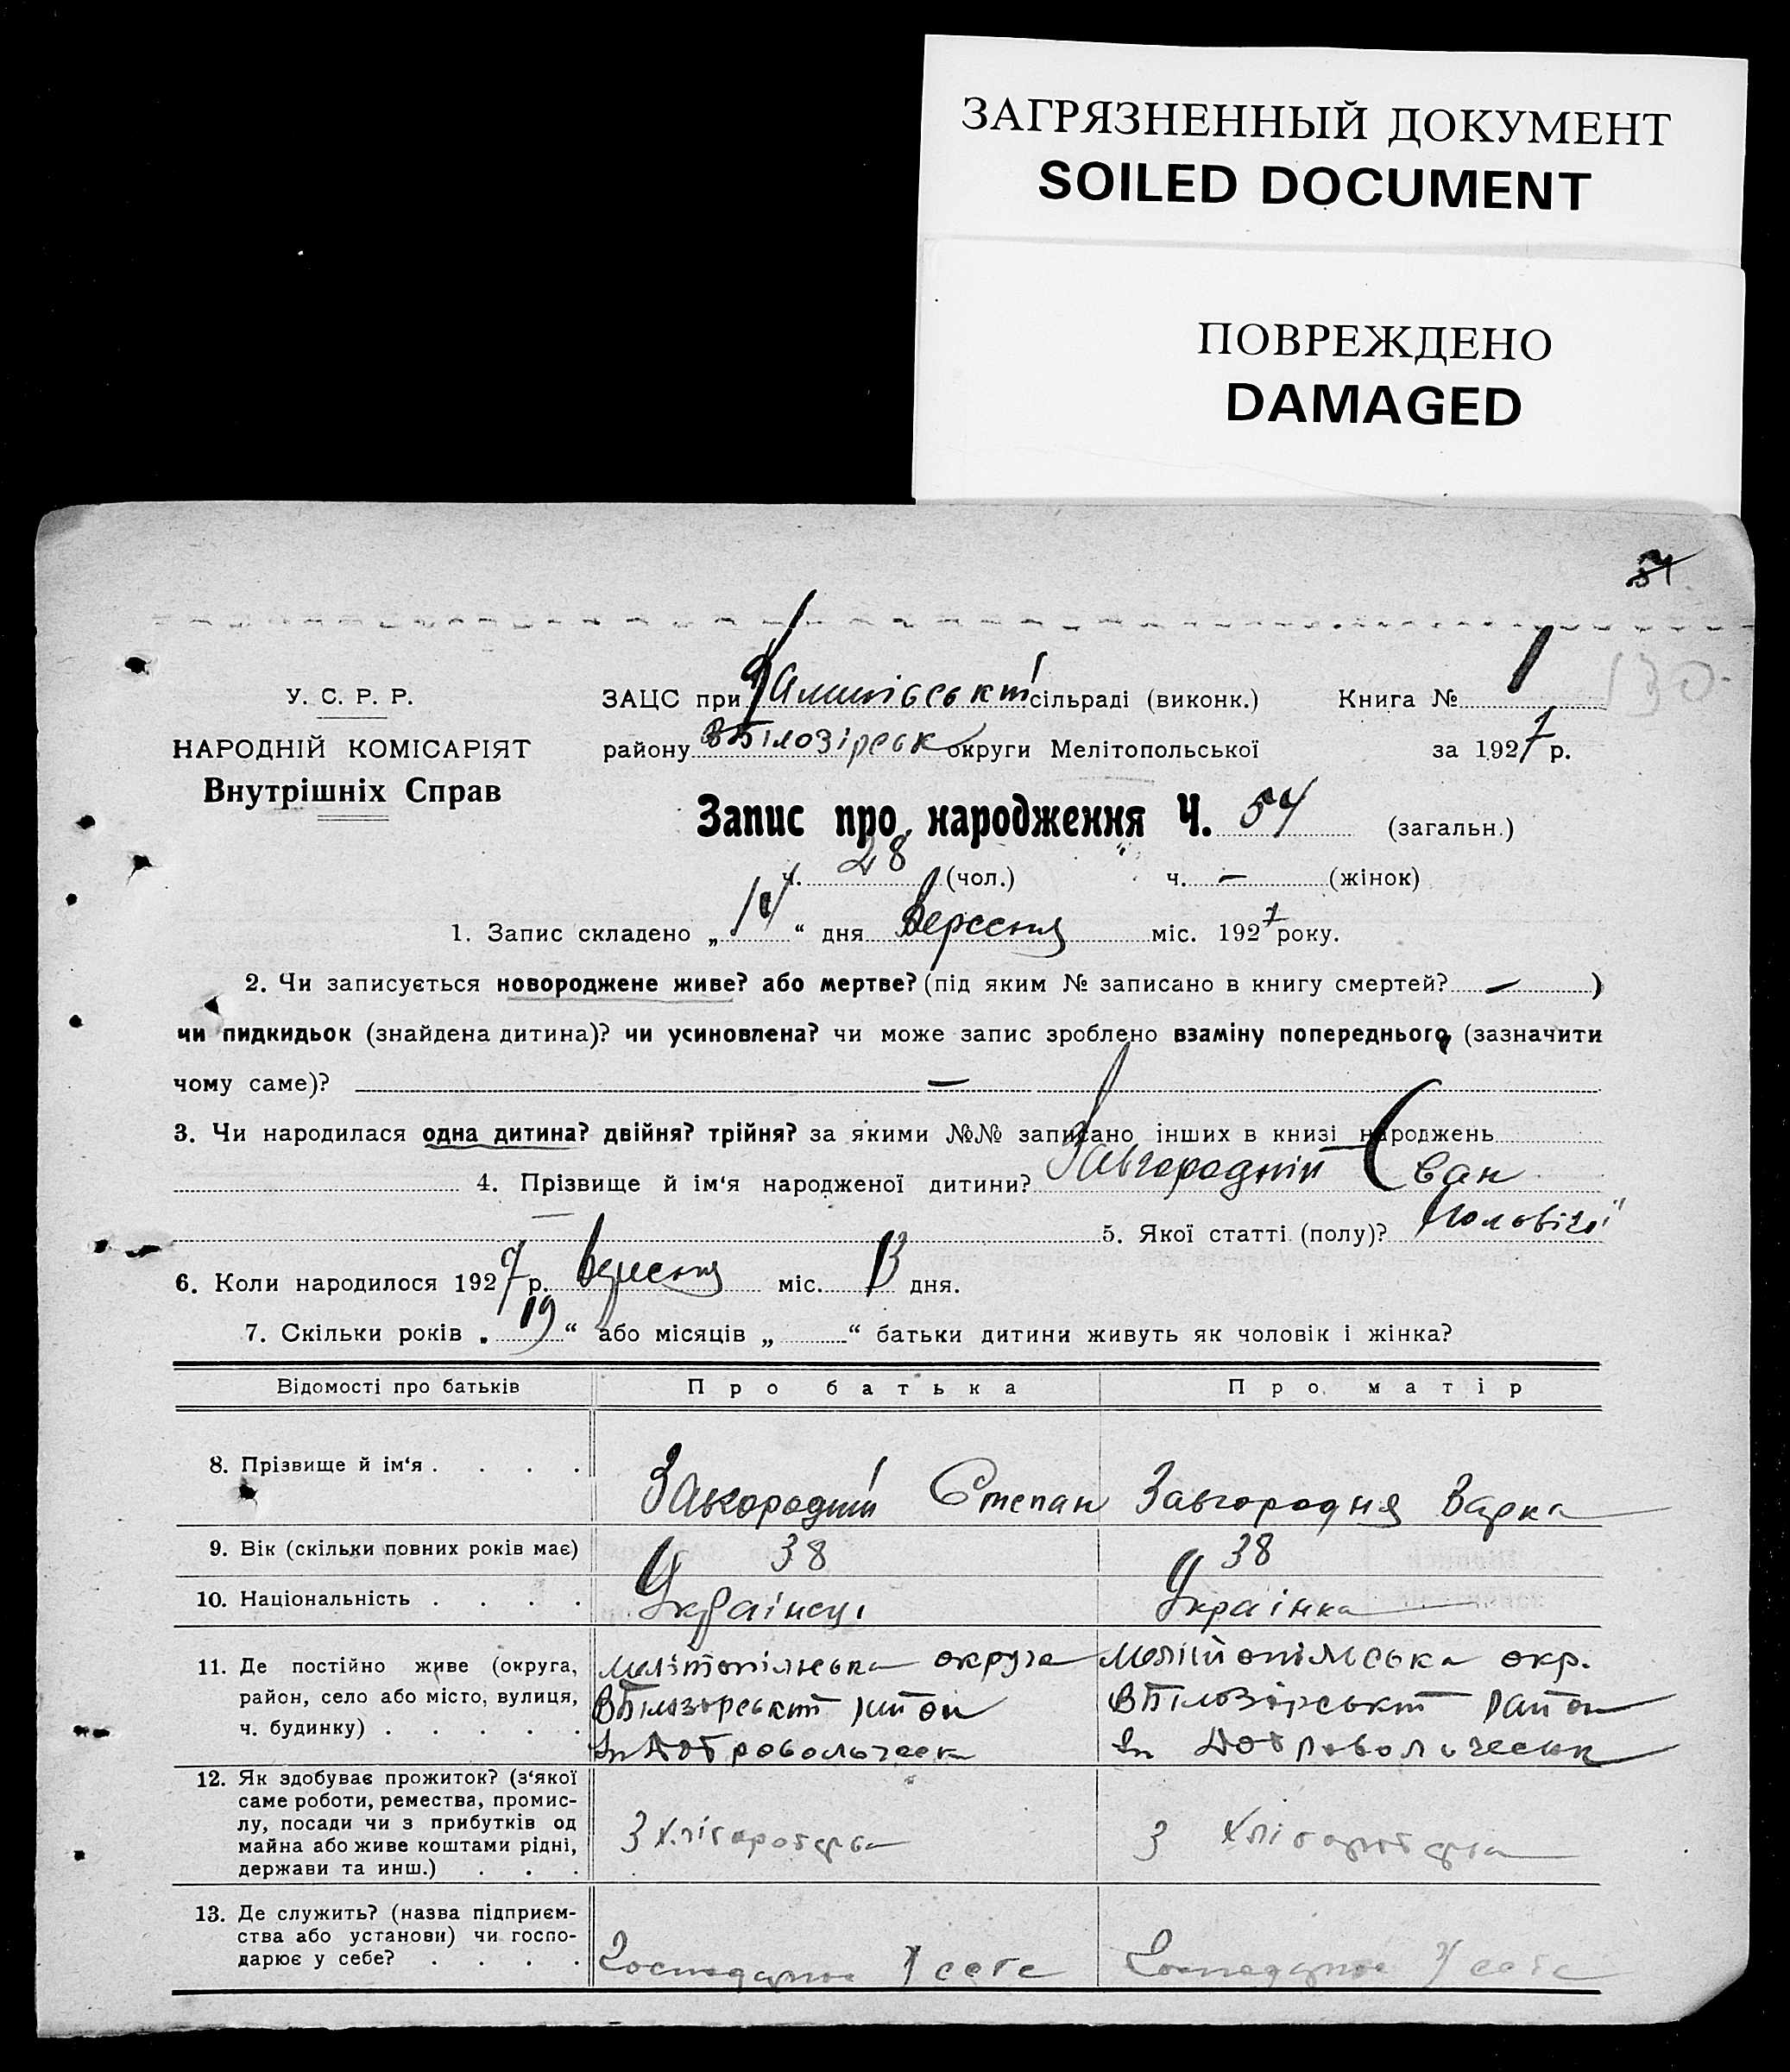 ЗАГРЯЗНЕННЫЙ ДОКУМЕНТ
SOILED DOCUMENT
ПОВРЕЖДЕНО
DAMAGED
54
130
У. С. Р. Р.
НАРОДНІЙ КОМІСАРІЯТ
Внутрішніх Справ
ЗАЦС при сільраді (виконк.) Книга № 1
району ВБілозірськ округи Мелітопольської за 1927 р.
Запис про народження Ч. 54 (загальн.)
ч. 28 (чол.) ч. — (жінок)
1. Запис складено „ 14 “ дня Вересня міс. 1927 року.
2. Чи записується новороджене живе? або мертве? (під яким № записано в книгу смертей? — )
чи пидкидьок (знайдена дитина)? чи усиновлена? чи може запис зроблено взаміну попереднього (зазначити
чому саме)? —
3. Чи народилася одна дитина? двійня? трійня? за якими №№ записано інших в книзі народжень
4. Прізвище й ім‘я народженої дитини? Завгородній Іван
— 5. Якої статті (полу)? Чоловічої
6. Коли народилося 1927 р. Вересня міс. 13 дня.
7. Скільки років „ 19 “ або місяців „ “ батьки дитини живуть як чоловік і жінка?
Відомості про батьків Про батька Про матір
8. Прізвище й ім‘я . . . . Завгородній Степан Завгородня Варка
9. Вік (скільки повних років має) 38 38
10. Національність . . . . Українець Українка
11. Де постійно живе (округа, Мелітопільська округа Мелітопільська окр.
район, село або місто, вулиця, ВБілозірський район ВБілозірський район
ч. будинку) . . . . .
12. Як здобуває прожиток? (з‘якої
саме роботи, ремества, промис-
лу, посади чи з прибутків од
майна або живе коштами рідні, З хліборобства З хліборобства
держави та инш.) . . .
13. Де служить? (назва підприєм-
ства або установи) чи госпо-
дарює у себе? . . . . Господарює У себе Господарює У себе